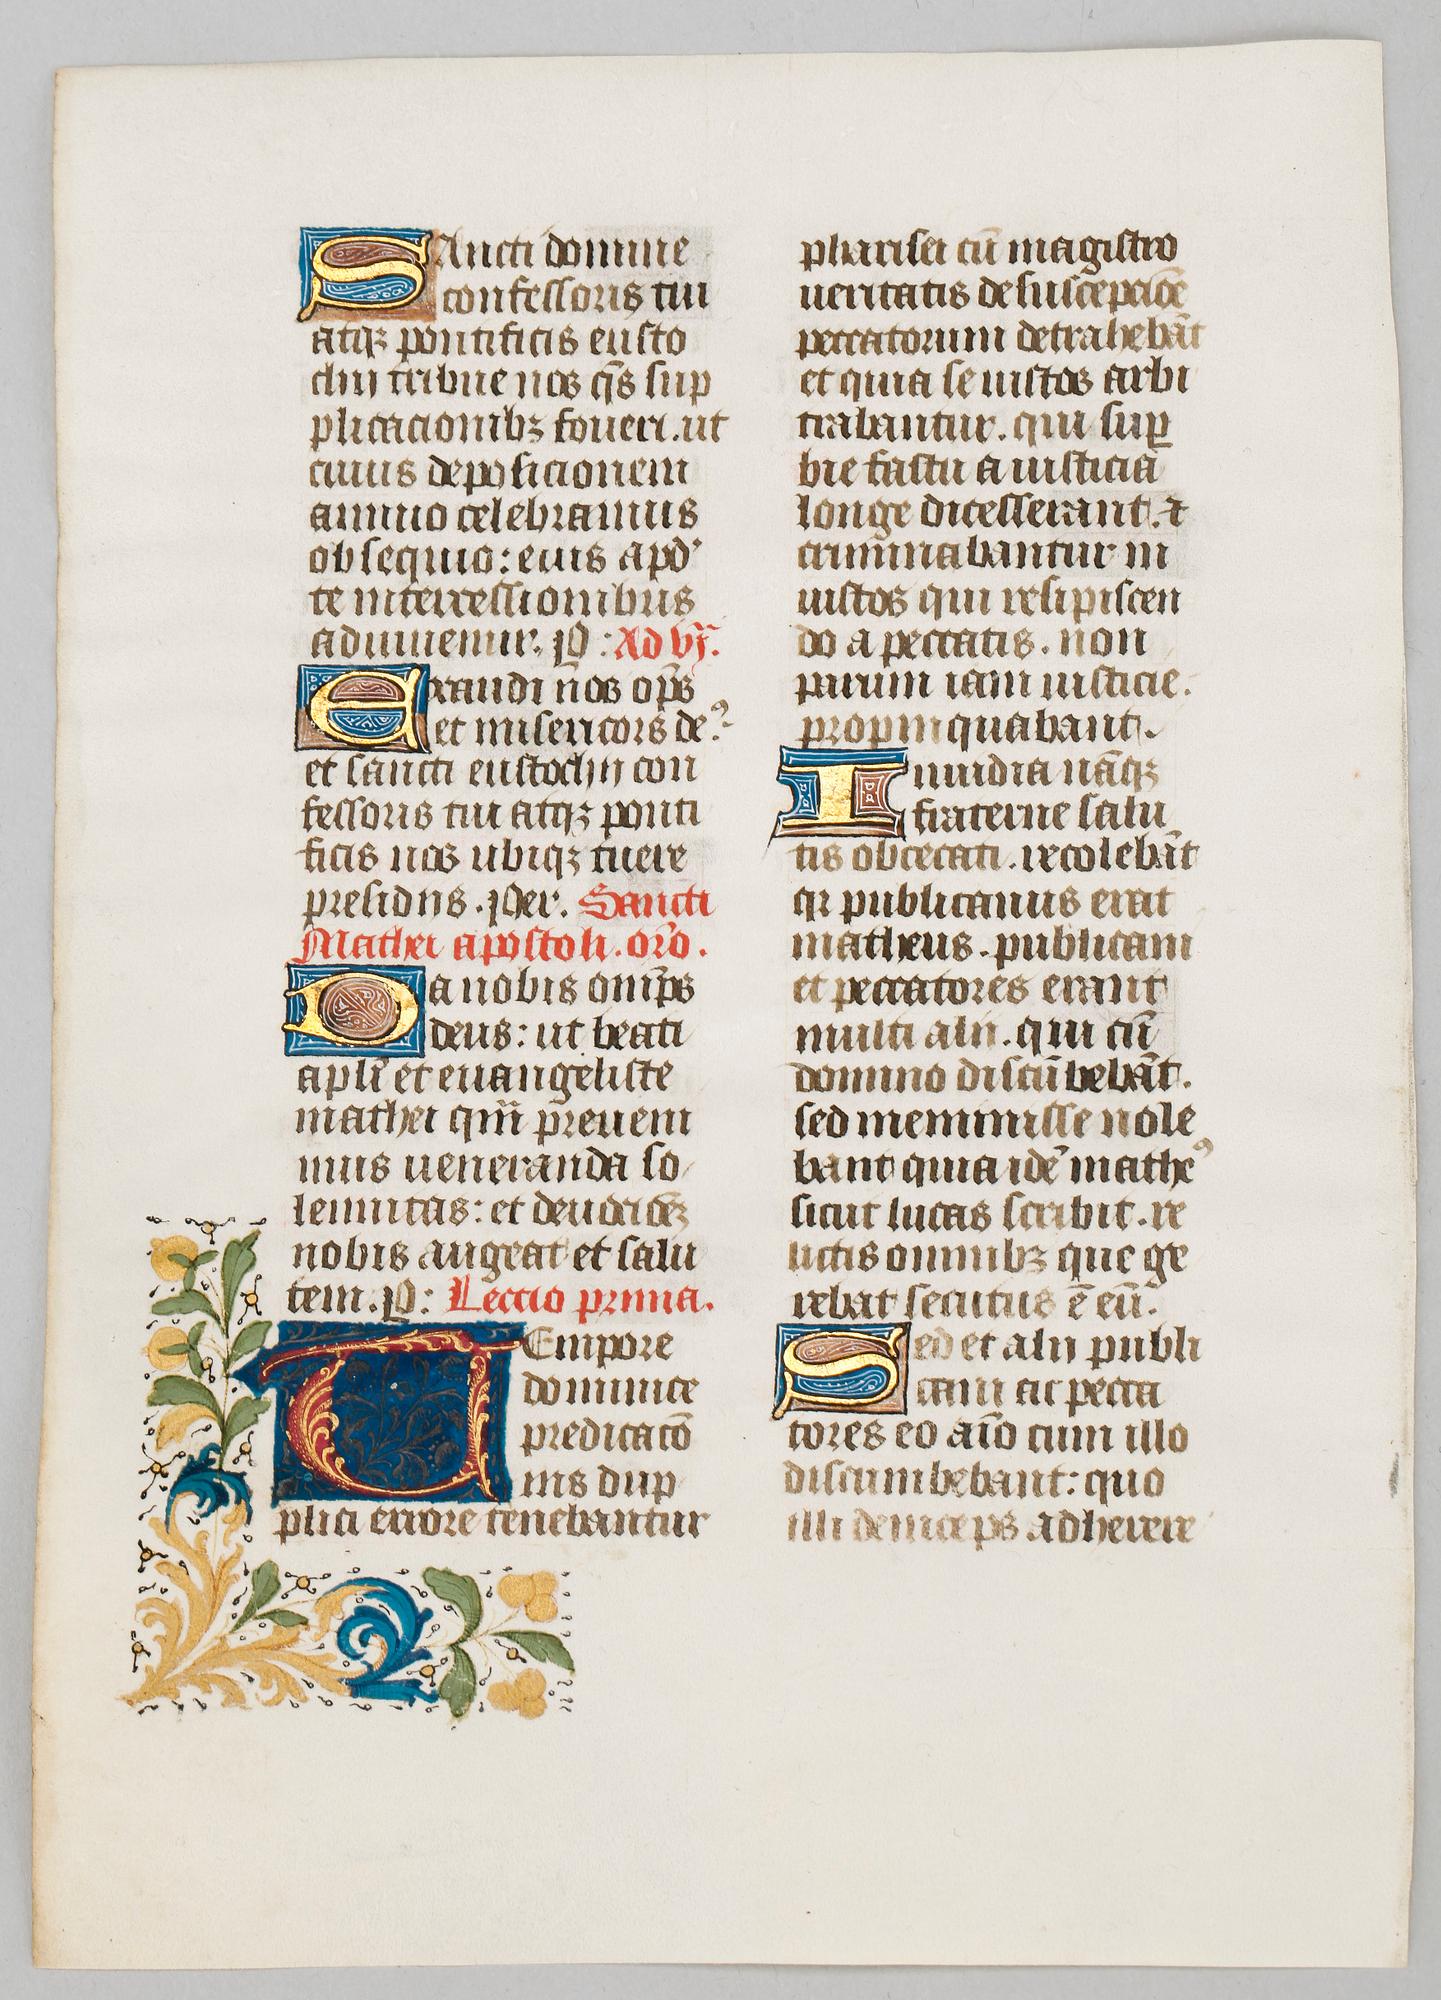 Sancti domine
confessoris tui
atqꝫ pontificis eusto
chij tribue nos q̄s sup
plicacionibꝫ foueri. ut
cuius deposicionem
annuo celebramus
obsequio: eius apd'
te intercessionibus
adiuuemur. P: Ad vꝭ.
Exaudi nos op̄s
et misericors deꝰ
et sancti eustochij con
fessoris tui atqꝫ ponti
ficis nos ubiqꝫ tuere
presidiis. Per. Sancti
Mathei apostoli. oro.
Da nobis omīps
deus: ut beati
apli et euangeliste
mathei qm̄ preueni
mus ueneranda so
lennitas: et deuocōeꝫ
nobis augeat et salu
tem. P: Lectio prima.
Tempore
dominice
predicacō
nis dup
plici errore tenebantur
pharisei cū magistro
ueritatis de suscepcōe
peccatorum detrahebāt
et quia se iustos arbi
trabantur. qui suꝑ
bie fastu a iusticia
longe dicesserant. ⁊
criminabantur in
iustos qui resipiscen
do a peccatis. non
parum iam iusticie.
propinquabant.
Inuidia nāqꝫ
fraterne salu
tis obcecati. recolebāt
qr publicanus erat
matheus. publicani
et peccatores erant
multi alii. qui cū
domino discūbebāt.
sed meminisse nole
bant quia idē matheꝰ
sicut lucas scribit. re
lictis omnibꝫ que ge
rebat secutus ē eū.
Sed et alij publi
cani ac pecca
tores eo aīo cum illo
discumbebant: quo
illi deinceps adherere